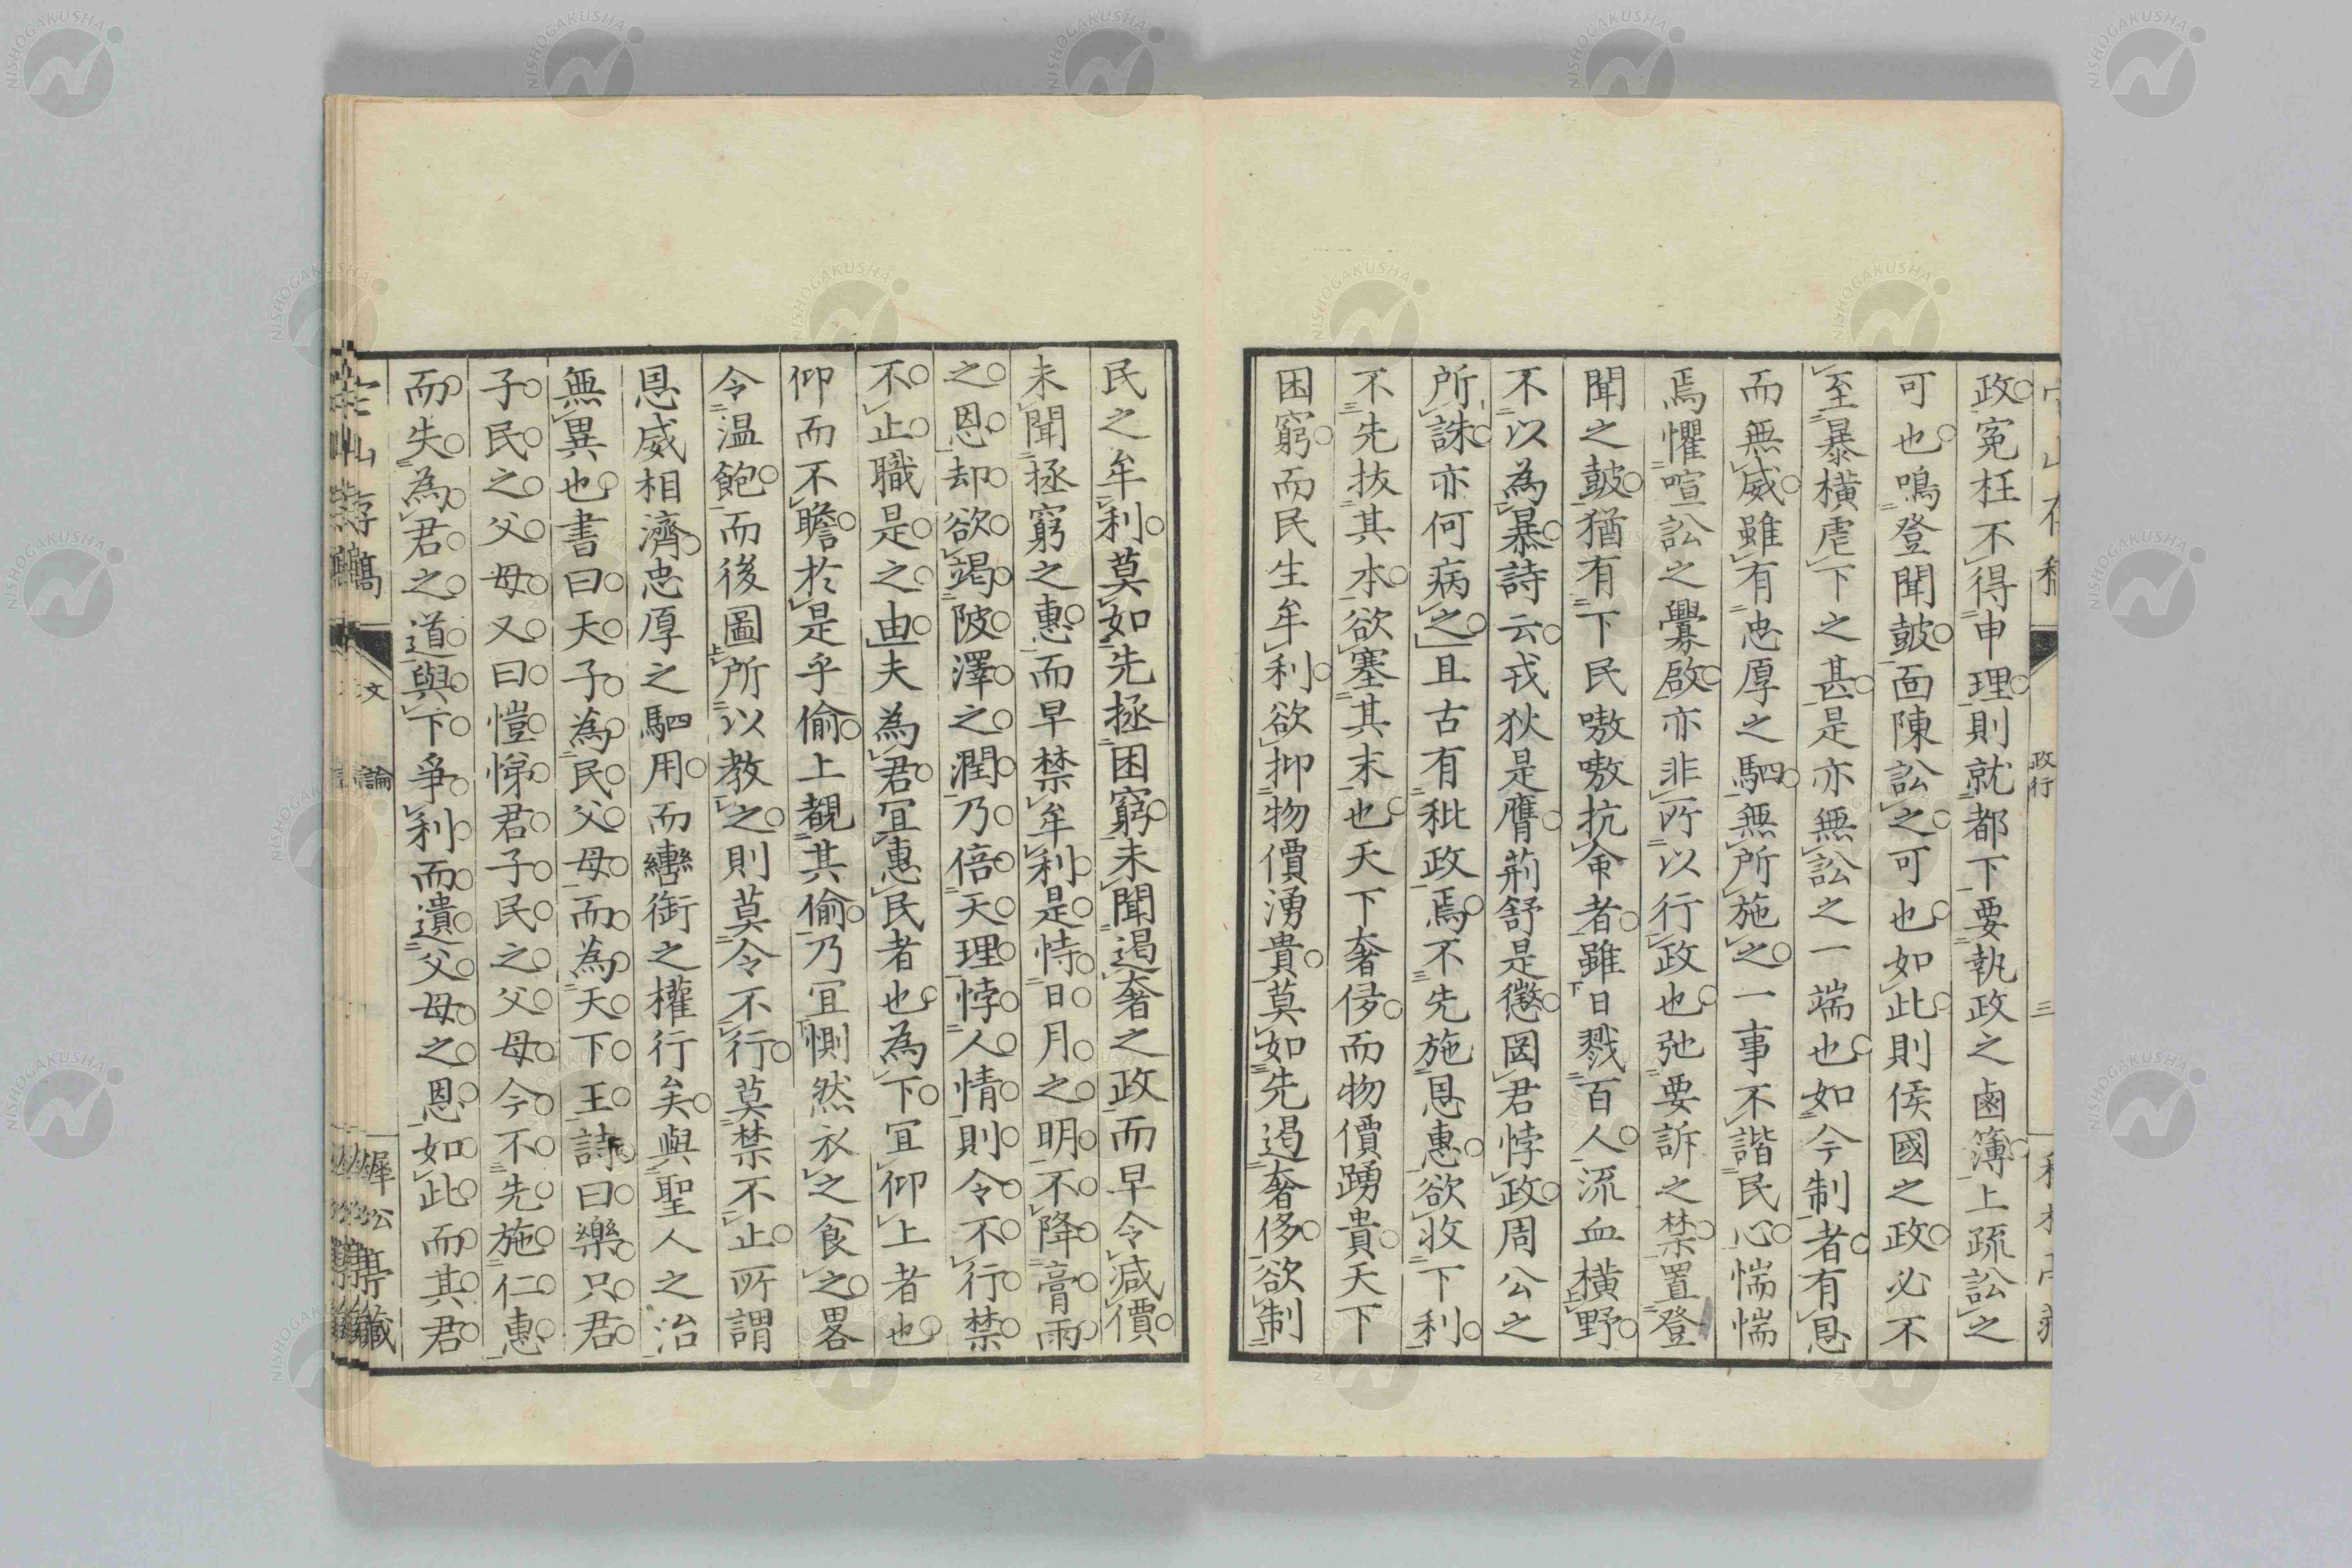 政冤枉不得申理則就都下要執政之鹵簿上疏訟之
可也鳴登聞皷面陳訟之可也如此則侯國之政必不
至暴横虐下之甚是亦無訟之一端也如今制者有恩
而無威雖有忠厚之駟無所施之一事不諧民心惴惴
焉懼喧訟之釁啟亦非所以行政也弛要訴之禁置登
聞之皷猶有下民嗷嗷抗命者雖日戮百人流血横野
不以為暴詩云戎狄是膺荊舒是懲罔君悖政周公之
所誅亦何病之且古有秕政焉不先施恩惠欲收下利
不先抜其本欲塞其末也天下奢侈而物價踴貴天下
困窮而民生牟利欲抑物價湧貴莫如先遏奢侈欲制
民之牟利莫如先拯困窮未聞遏奢之政而早令減價
未聞拯窮之惠而早禁牟利是恃日月之明不降膏雨
之恩却欲竭陂澤之潤乃倍天理悖人情則令不行禁
不止職是之由夫為君宜惠民者也為下宜仰上者也
仰而不瞻於是乎偷上覩其偷乃宜惻然衣之食之畧
令温飽而後圖所以教之則莫令不行莫禁不止所謂
恩威相濟忠厚之駟用而轡銜之權行矣與聖人之治
無異也書曰天子為民父母而為天下王詩曰樂只君
子民之父母又曰愷悌君子民之父母今不先施仁惠
而失為君之道與下爭利而遺父母之恩如此而其君
政行
三
文
論
犀松亭藏